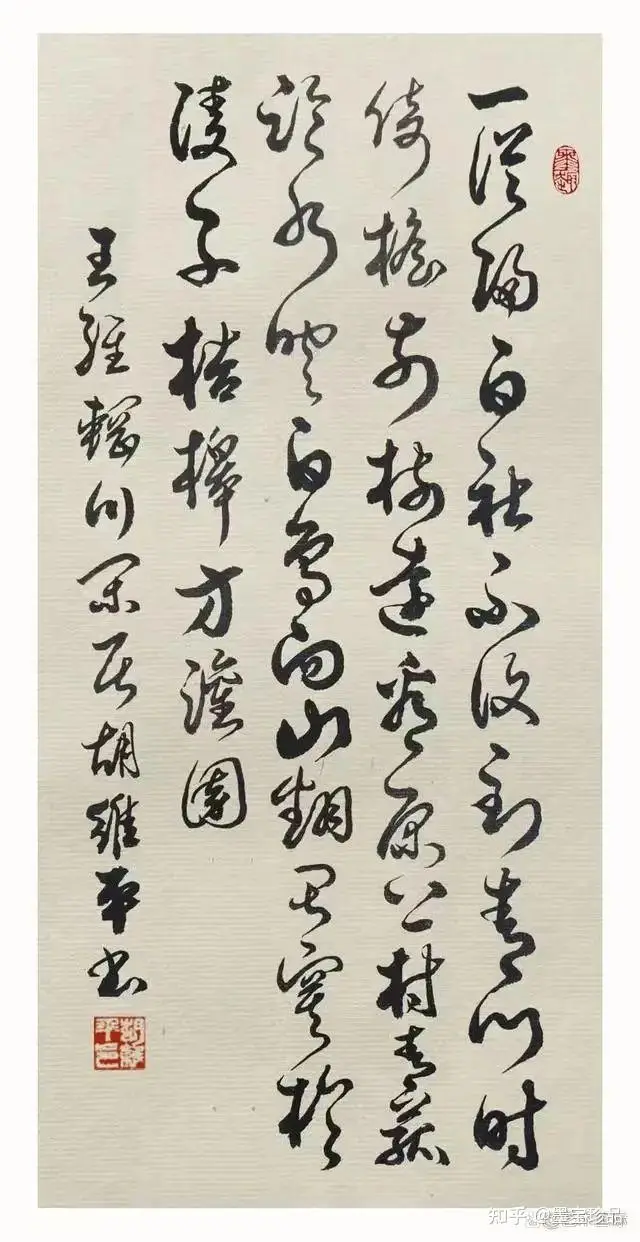 一從歸白社不復到青門时
倚檐前樹遠看原上村青菰
臨水映白鳥向山翻寂寞於
陵子桔槔方灌園
王維輞川閑居胡維平书
知乎 @墨宝珍品